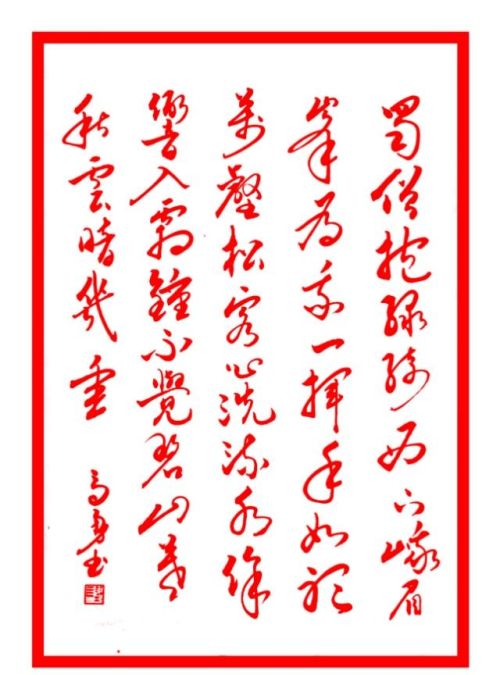 蜀僧抱綠綺西下峨眉
峯為我一揮手如聽
萬壑松客心洗流水餘
響入霜鐘不覺碧山暮
秋雲暗幾重
高勇书